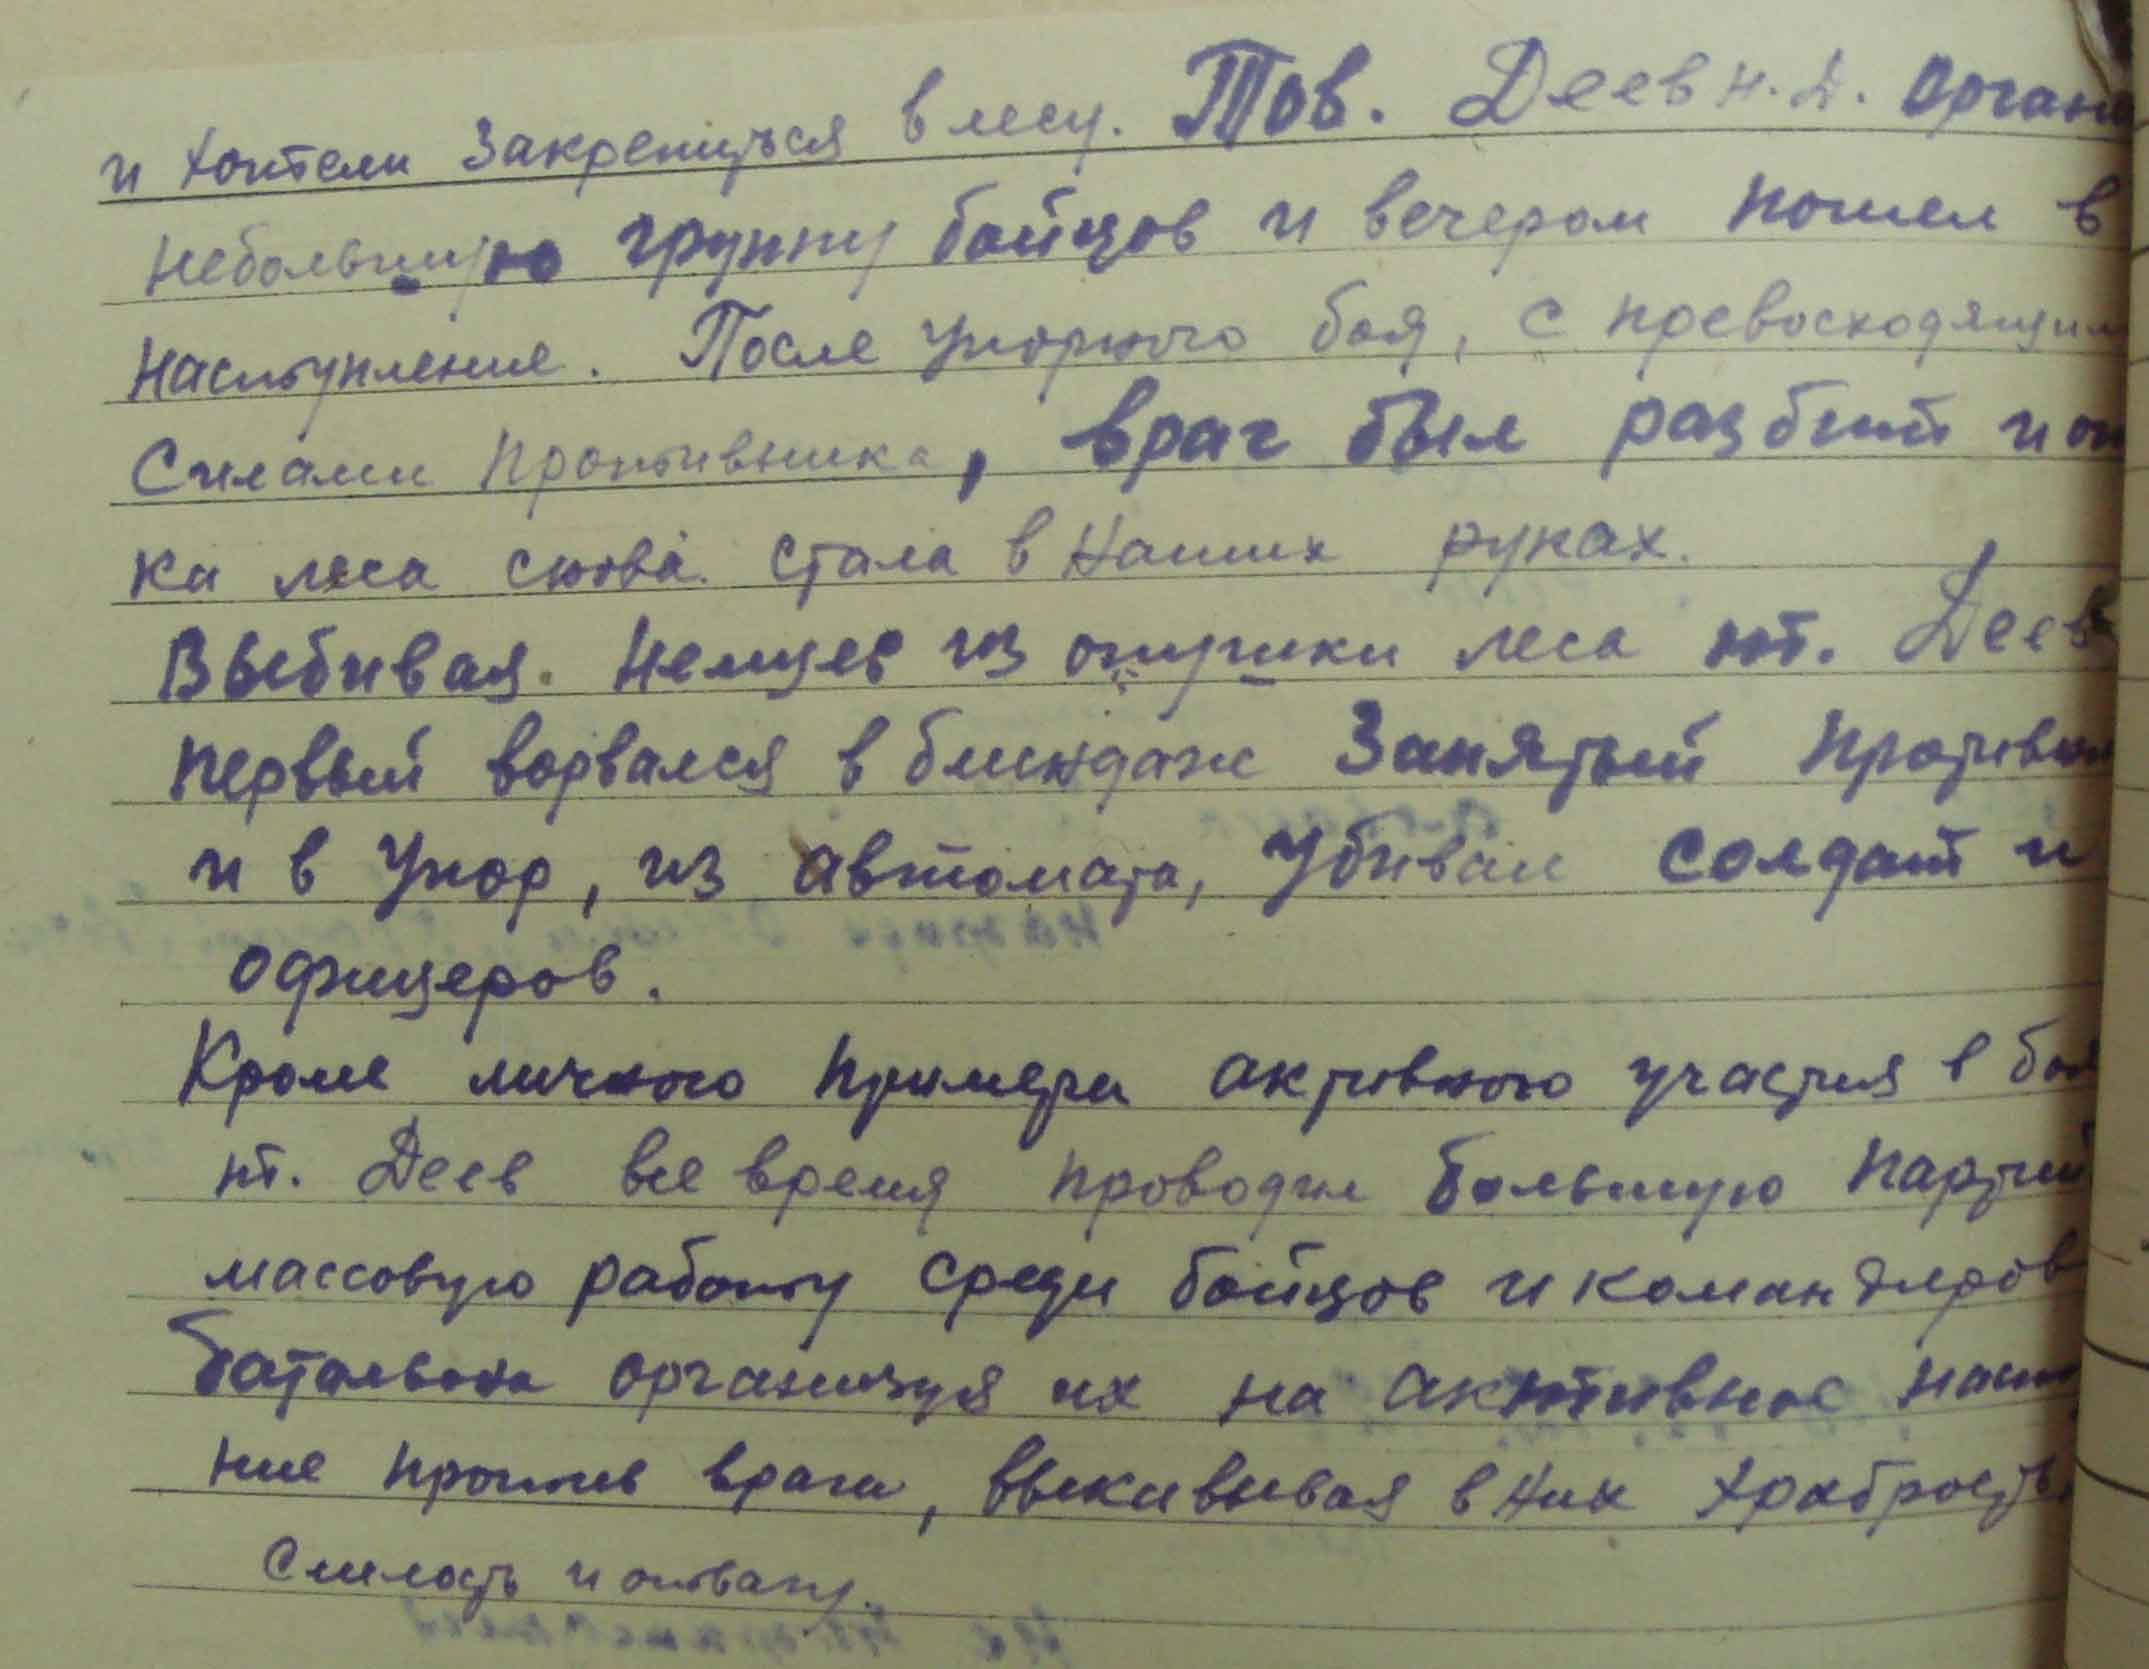 и хотели закрепиться в лесу. Тов. Деев Н. Д. органи
небольшую группу бойцов и вечером пошел в
наступление. После упорного боя, с превосходящим
силами противника, враг был разбит и оп
ка леса снова стала в наших руках.
Выбивая немцев из опушки леса пт. Деев
первый ворвался в блиндаж занятый противн
и в упор, из автомата, убивал солдат и
офицеров.
Кроме личного примера активного участия в боя
пт. Деев все время проводил большую партий
массовую работу среди бойцов и командиров
батальона организуя их на активное наст
ние против врага, выкивывая в них храбрость,
смелость и отвагу.